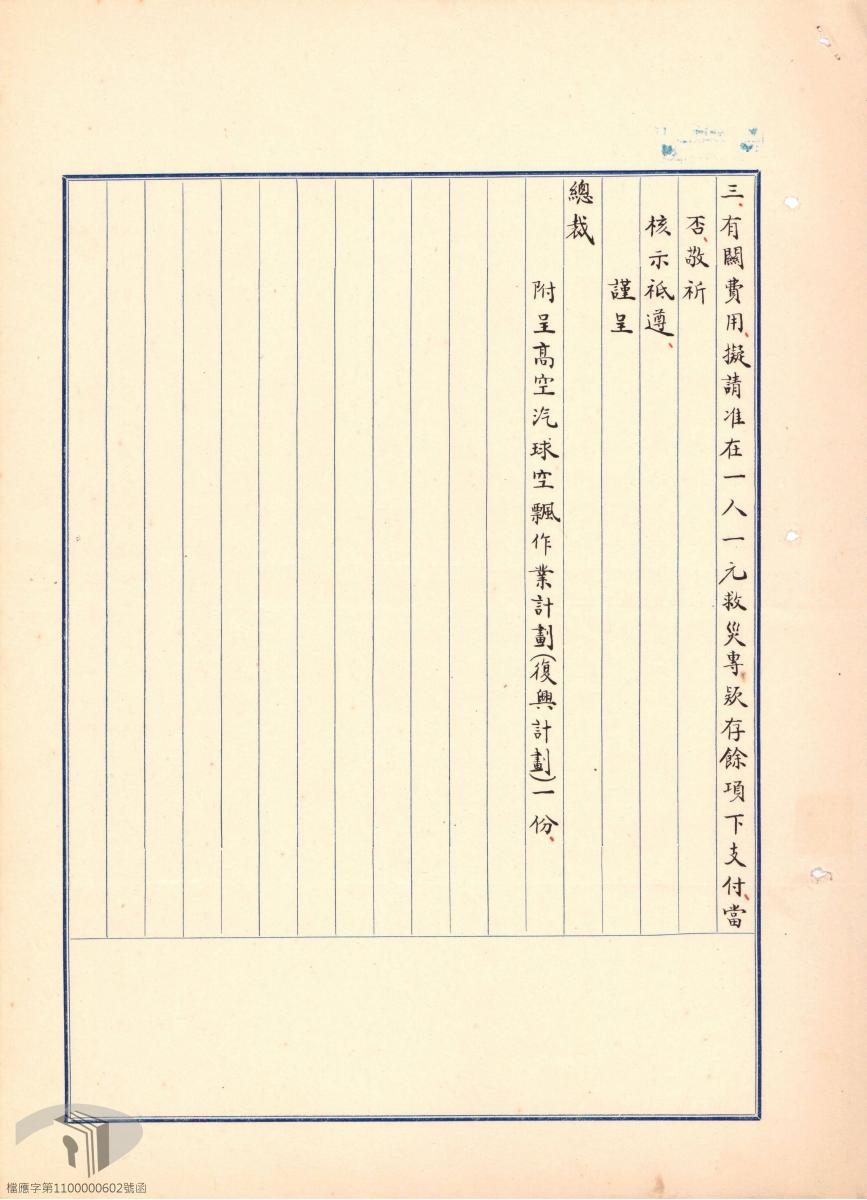 三、有關費用、擬請准在一人一元救災專款存餘項下支付、當
否、敬祈
核示祗遵、
謹呈
總裁
附呈高空汽球空飄作業計劃(復興計劃)一份、
檔應字第1100000602號函